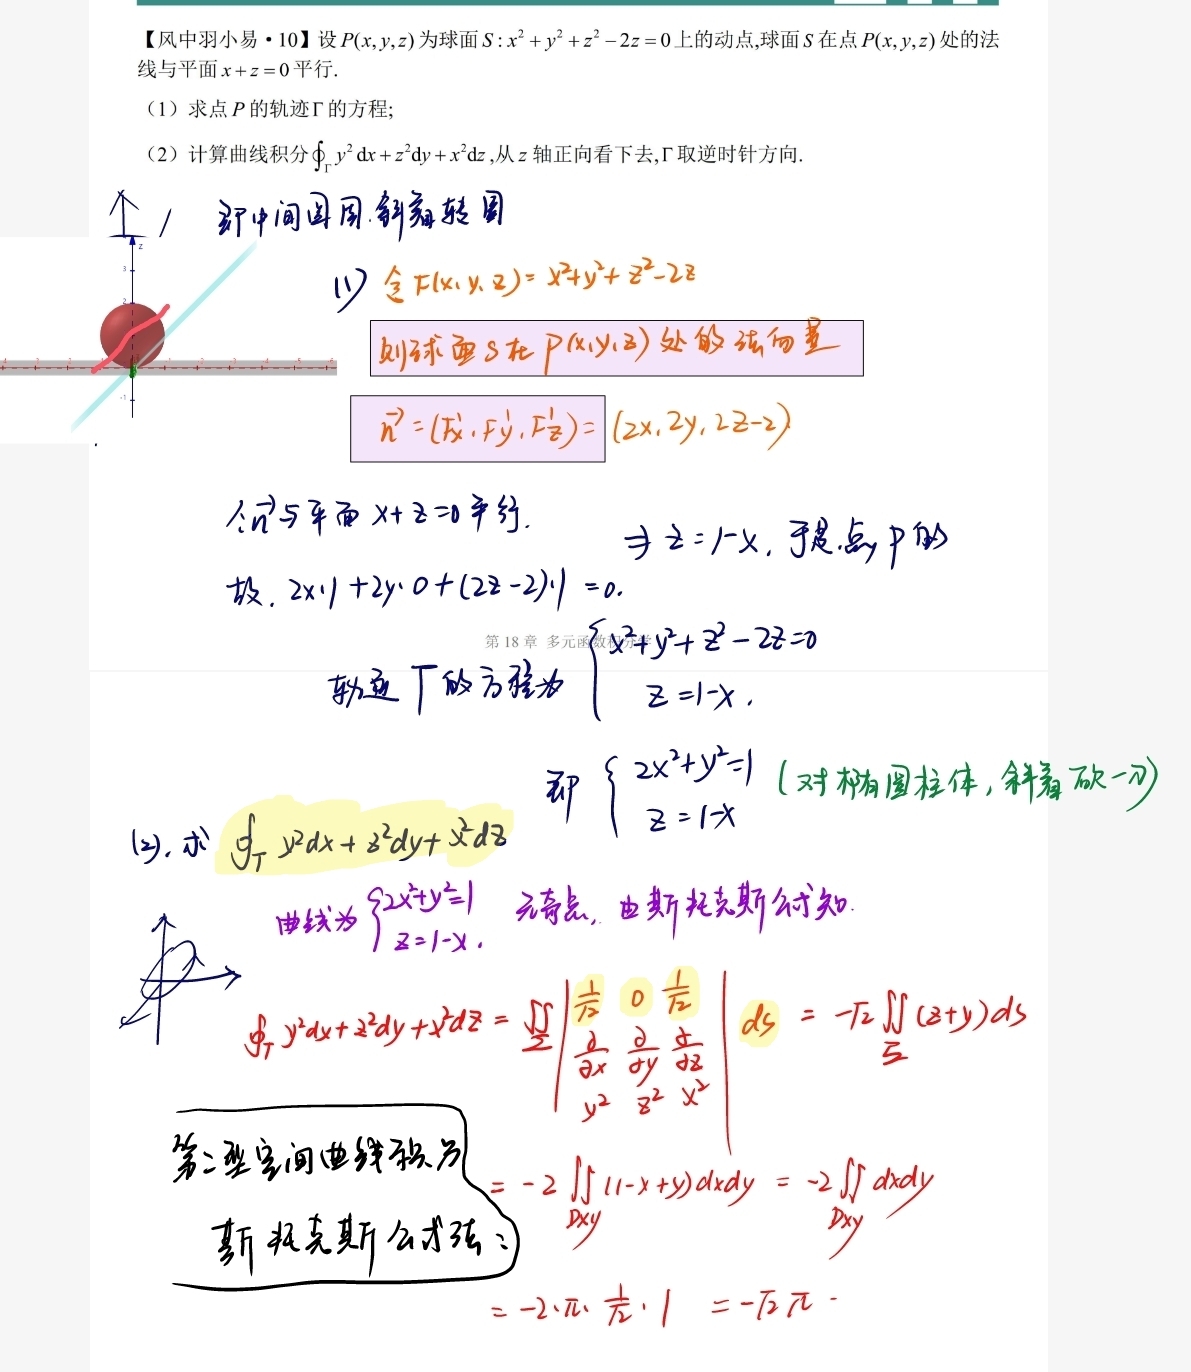 【风中羽小易·10】设P(x,y,z)为球面S:x²+y²+z²−2z=0上的动点,球面S在点P(x,y,z)处的法
线与平面x+z=0平行.
（1）求点P的轨迹Γ的方程;
（2）计算曲线积分∮_Γ y²dx+z²dy+x²dz,从z轴正向看下去,Γ取逆时针方向.
即中间圆周.斜着转圆
(1) 令F(x、y、z)=x²+y²+z²-2z
则球面S在P(x,y,z)处的法向量
n⃗=(F'x,F'y,F'z)=(2x,2y,2z-2)
令n⃗与平面x+z=0平行.
故.2x·1+2y·0+(2z-2)·1=0.
⇒z=1-x.于是.点P的
第 18 章 多元函数积分学
轨迹Γ的方程为{x²+y²+z²-2z=0
z=1-x.
即{2x²+y²=1
z=1-x
(对椭圆柱体,斜着砍一刀)
(2).求∮_Γ y²dx+z²dy+x²dz
曲线为{2x²+y²=1
z=1-x.
无奇点,由斯托克斯公式知.
∮_Γ y²dx+z²dy+x²dz=∬_Σ |1/√2 0 1/√2
∂/∂x ∂/∂y ∂/∂z
y² z² x²| ds=-√2∬_Σ(z+y)ds
第二型空间曲线积分
斯托克斯公式法:
=-2∬_Dxy(1-x+y)dxdy=-2∬_Dxy dxdy
=-2·π·1/√2·1=-√2π.